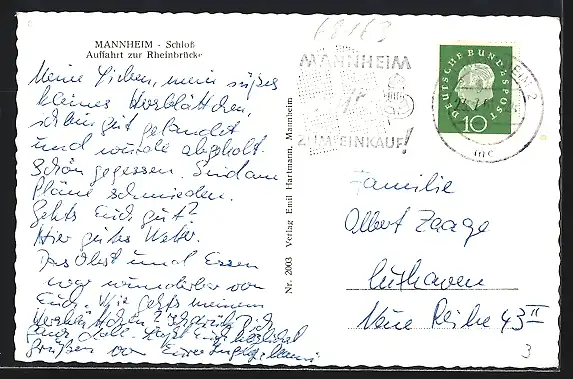 MANNHEIM - Schloß
Auffahrt zur Rheinbrücke
Meine Lieben, mein süßes
kleines Herzblättchen,
schön gut gelandet
und wurde abgeholt.
Schön gegessen. Sind am
Pläne schmieden.
Gehts Euch gut?
Hier gutes Wetter.
Das Obst und Essen
war wunderbar von
Euch. Wie gehts meinem
Herzblättchen
Grüßen von
Nr. 2003 Verlag Emil Hartmann, Mannheim
MANNHEIM
ZUM EINKAUF!
DEUTSCHE BUNDESPOST
10
Familie
Albert Zaage
Cuxhaven
Neue Reihe 43 II
3